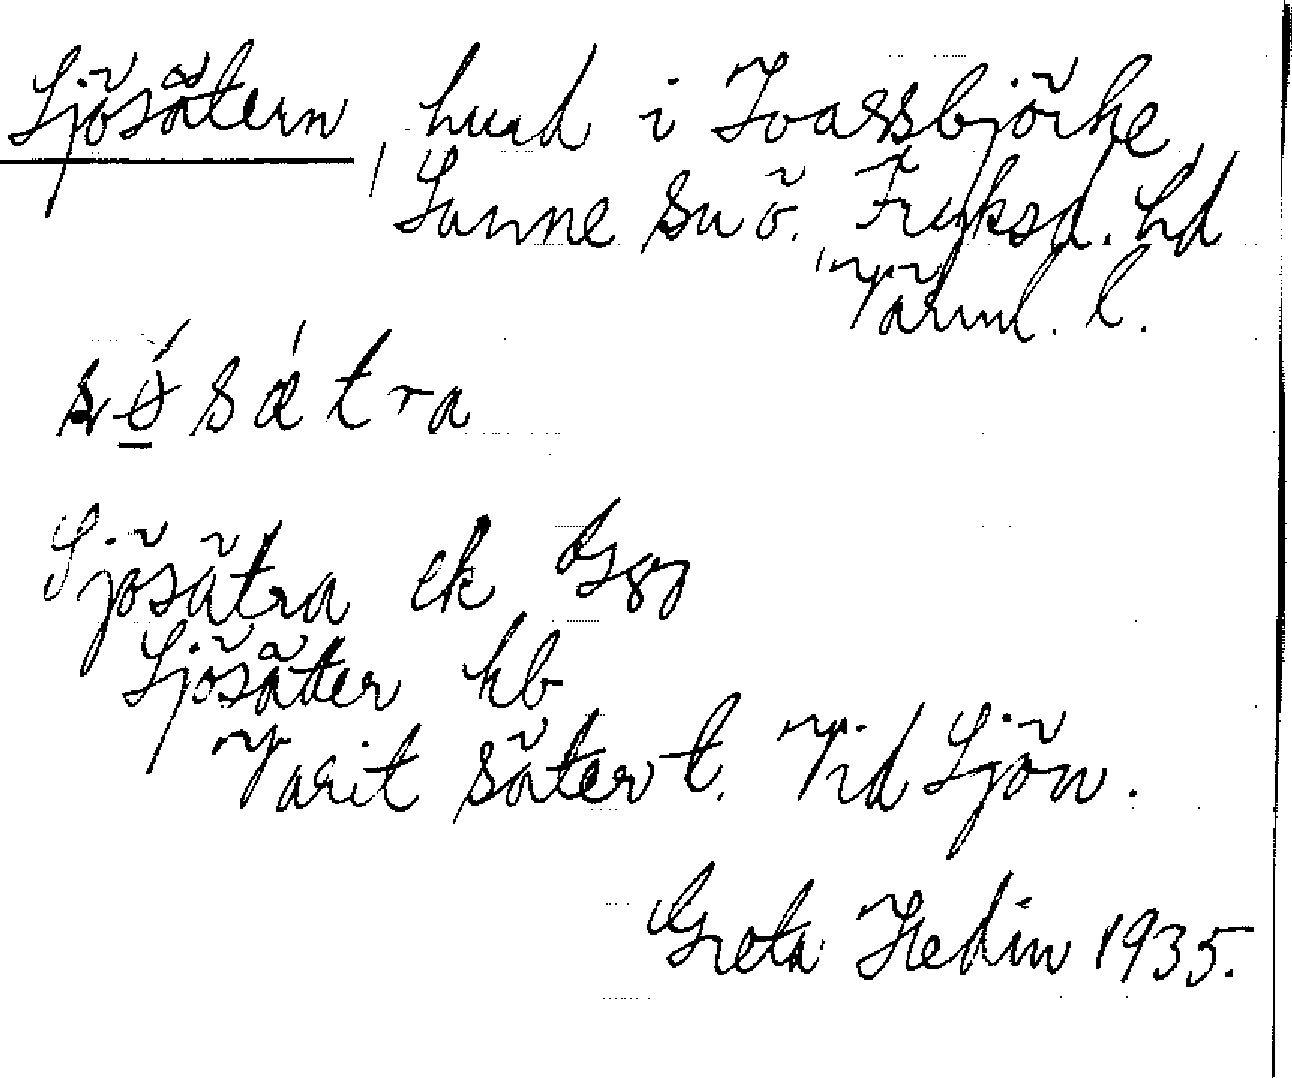 Sjösätern, hmd i Ivarsbjörke
Sunne sn ö. Fryksd. hd
Värml. l.
sǿ̱sætra
Sjösätra ek G 87
Sjösäter kb
Varit sätervt. Vid Sjön.
Greta Hedin 1935.